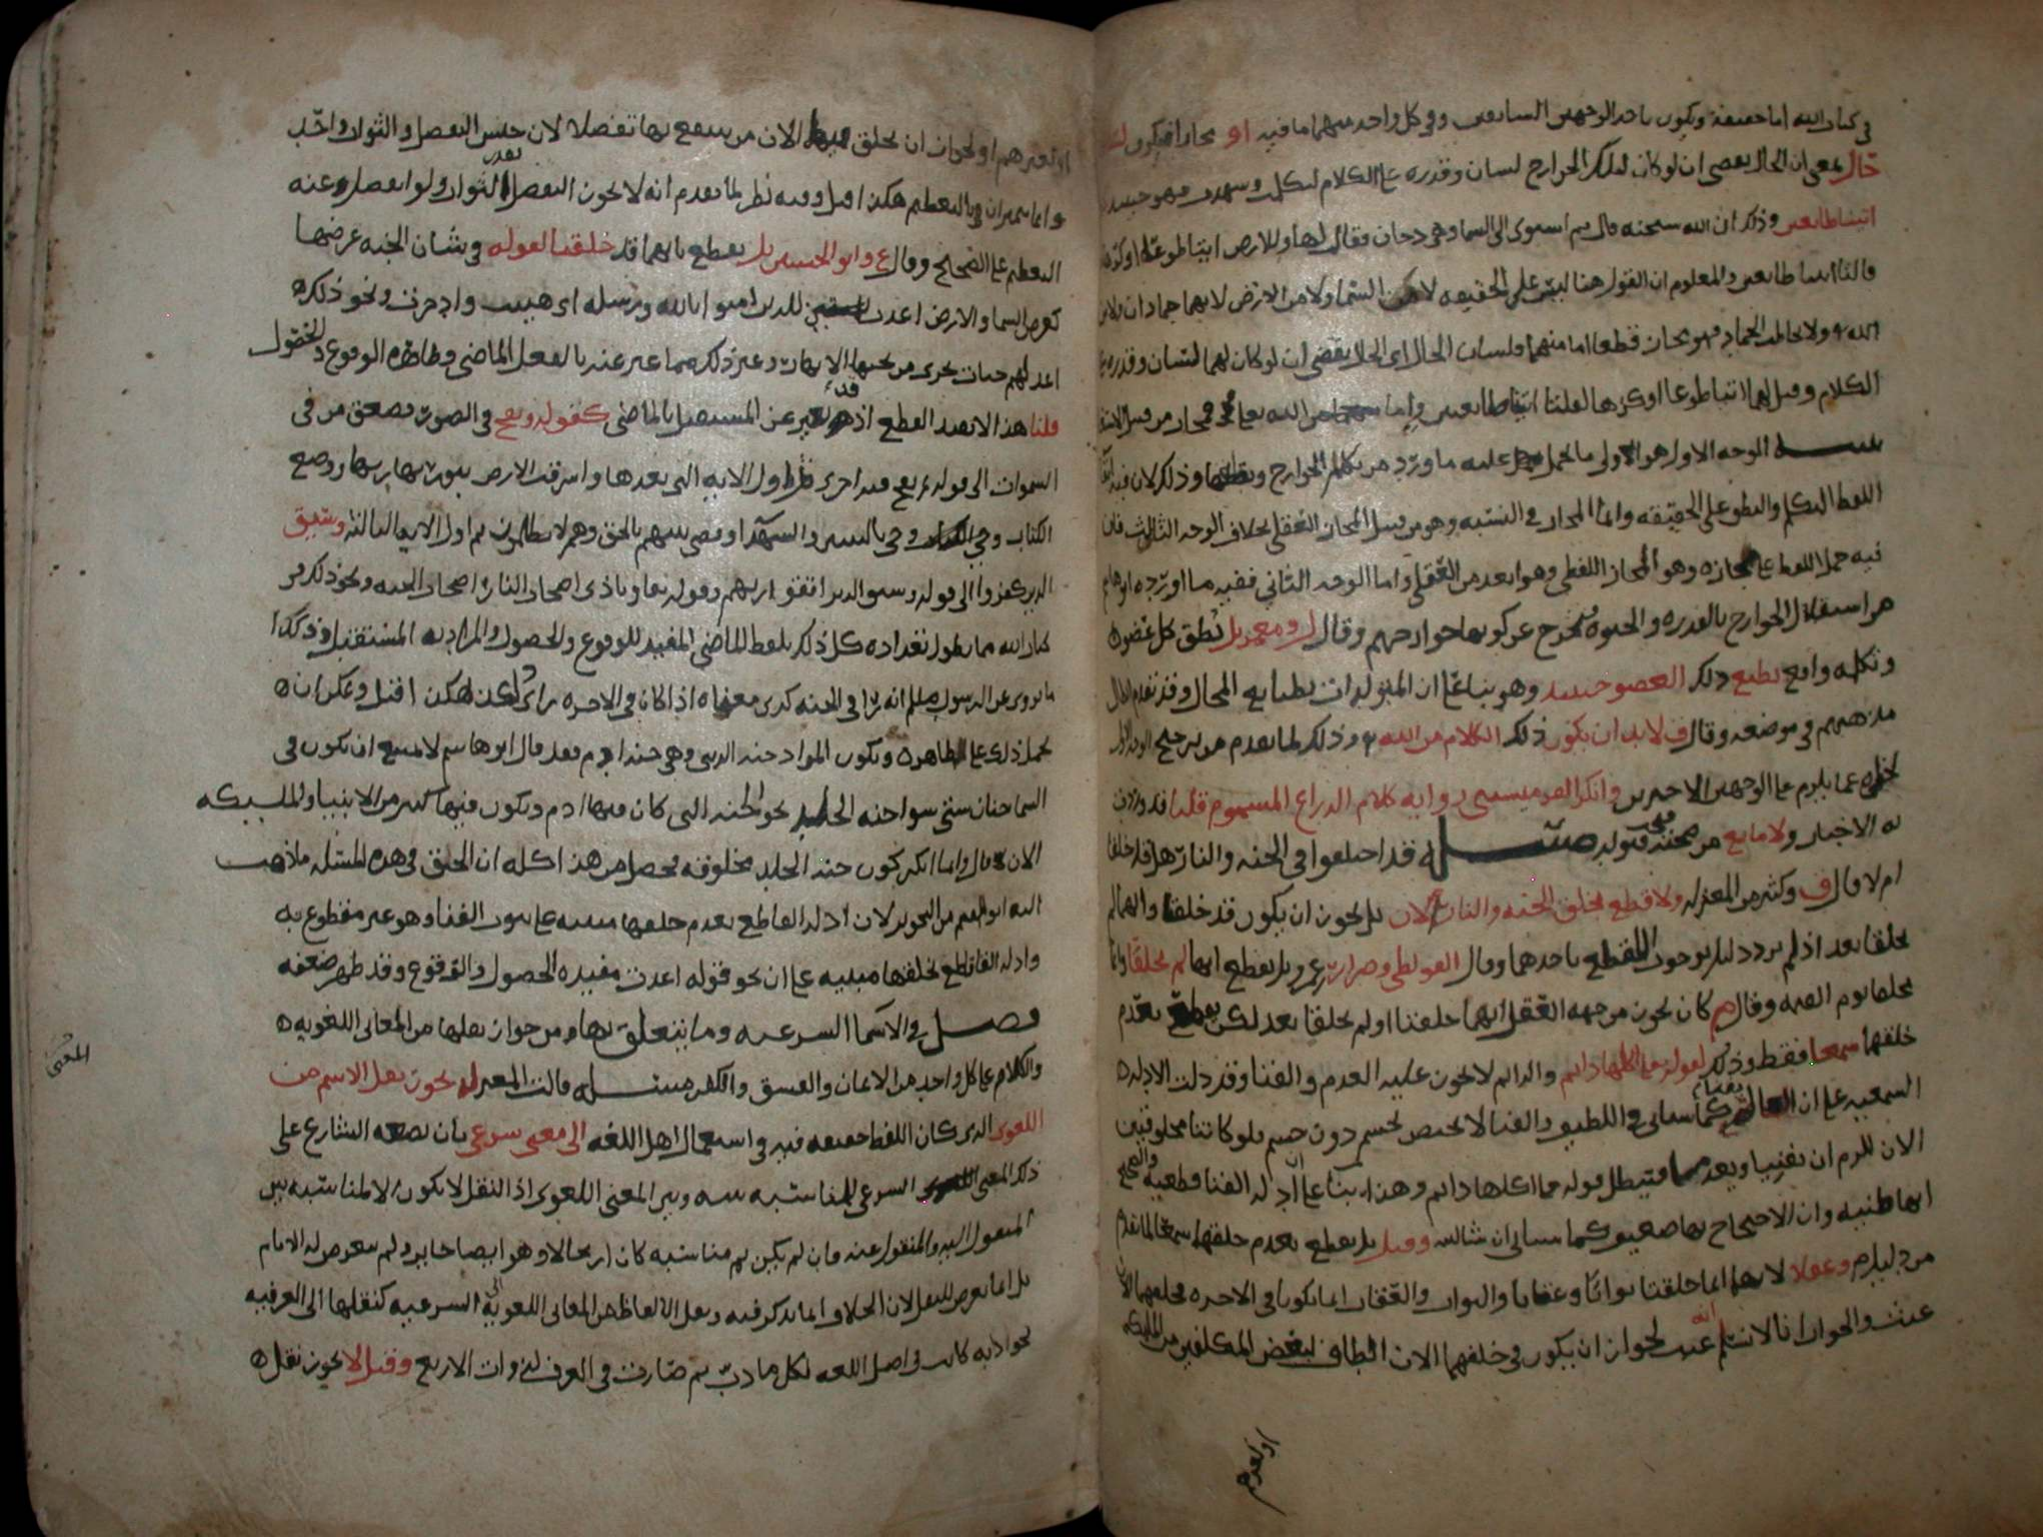 في كتاب الله اما حقيقة ويكون باحد الوجهين السابقين وفي كل واحد منهما ما فيه او مجازا فيكون
حال بمعنى ان الحال يقضي ان لو كان لتلك الجوارح لسان وقدره على الكلام لتكلمت وشهدت فهو حينئذ
اتينا طائعين وذلك ان الله سبحنه قال ثم استوى الى السما وهي دخان فقال لها وللارض ايتيا طوعا او كرها
قالتا اتينا طائعين والمعلوم ان القول هنا ليس على الحقيقه لا من السما ولا من الارض لانهما جمادات
الله ولا يخاطب الجماد فهو مجاز قطعا اما منهما فلسان الحال اي الحال يقضي ان لو كان لهما لسان وقدره
الكلام وقيل لهما ايتيا طوعا او كرها لقلتا اتينا طائعين واما من الله تعلى فمجاز من قبيل
الوجه الاول هو الاولى ما يحمل عليه ما ورد من تكلم الجوارح وذلك لان فيه
اللفظ التكلم والنطق على الحقيقه وانما المجاز في النسبه وهو من قبيل المجاز العقلي بخلاف الوجه الثالث فان
فيه حمل اللفظ على مجازه وهو المجاز اللفظي وهو ابعد من العقلي واما الوجه الثاني ففيه ما اورده
من استقلال الجوارح بالقدره والحيوه فتخرج عن كونها جوارحهم وقال بل نطق كل عضو
وتكلمه واقع بطبع ذلك العضو حينئذ وهو بناء على ان المتولدات بطبايع المحال وقد تقدم ابطال
مذهبهم في موضعه وقال ف لا بد ان يكون ذلك الكلام من الله وذلك لما تقدم من ترجيح الوجه الاول
عما يلزم على الوجهين الاخيرين وانكر رواية كلام الذراع المسموم قلنا قد وردت
به الاخبار ولا مانع من صحته فقبوله مسئله قد اختلفوا في الجنه والنار هل قد خلقتا
ام لا قال ف وكثير من المعتزله ولا قطع بخلق الجنه والنار الان بل يجوز ان يكون قد خلقتا وانهما لم
يخلقا بعد اذ لم يرد دليل يوجب القطع باحدهما وقال الفوطي وضرار بن عمرو بل نقطع انهما لم يخلقا وانما
يخلقا يوم القيمه وقال هم كان يجوز من جهه العقل انهما خلقتا او لم يخلقا بعد لكن نقطع بعدم
خلقهما سمعا فقط وذلك لقوله تعلى اكلها دائم والدائم لا يجوز عليه العدم والفنا وقد دلت الادله
السمعيه على ان العالم يفنى كما سياتي في اللطيف والفنا لا يختص بجسم دون جسم فلو كانتا مخلوقتين
الان للزم ان تفنيا وتعدما فيبطل قوله تعلى اكلها دائم وهذا بناء على ان ادله الفنا قطعيه والصحيح
انها ظنيه وان الاحتجاج بها ضعيف كما سياتي ان شا الله وقيل بل نقطع بعدم خلقهما سمعا لما تقدم
من دليل وعقلا لانهما انما خلقتا ثوابا وعقابا والثواب والعقاب انما يكونا في الاخره فخلقهما الان
عبث والجواب انا لا نسلم انه عبث لجواز ان يكون في خلقهما الان الطاف لبعض المكلفين من الملائكه
او لغيرهم
او لغيرهم او لجواز ان يخلق فيها الان من ينتفع بها تفضلا لان جنس التفضل والثواب واحد
وانما يتميزان بالتعظيم هكذا قيل وفيه نظر لما تقدم انه لا يجوز التفضل بقدر الثواب ولو انفصل عنه
التعظيم على الصحيح وقال ع وابو الحسين بل نقطع بانهما قد خلقتا لقوله في شان الجنه عرضها
كعرض السما والارض اعدت للذين امنوا بالله ورسله اي هييت وادخرت ونحو ذلك
اعد لهم جنات تجري من تحتها الانهار وغير ذلك مما عبر عنه بالفعل الماضي وظاهره الوقوع والحصول
قلنا هذا لا يفيد القطع اذ قد يعبر عن المستقبل بالماضي كقوله ونفخ في الصور فصعق من في
السموات الى قوله ثم نفخ فيه اخرى هذا اول الايه التي بعدها واشرقت الارض بنور ربها ووضع
الكتاب وجي بالنبيين والشهدا وقضي بينهم بالحق وهم لا يظلمون ثم اول الايه الثالثه وسيق
الذين كفروا الى قوله وسيق الذين اتقوا ربهم وقوله تعلى ونادى اصحاب النار اصحاب الجنه ونحو ذلك في
كتاب الله مما يطول تعداده كل ذلك بلفظ الماضي المفيد للوقوع والحصول والمراد به المستقبل وكذا
ما روي عن الرسول صلعم انه راى في الجنه كذى معناه اذا كان في الاخره راى ذلك هكذا قيل ويمكن ان
يحمل ذلك على ظاهره ويكون المراد جنه الدنيا وهي جنه ادم فقد قال ابو هاشم لا يمتنع ان يكون في
السما جنان ستى سوا جنه الخلد نحو الجنه التي كان فيها ادم ويكون فيها كثير من الانبيا والمليكه
الان قال وانما انكر كون جنه الخلد مخلوقه فحصل من هذا كله ان الحق في هذه المسئله ما ذهب
اليه ابو الهذيل من التجويز لان ادله القاطع بعدم خلقهما مبنيه على ثبوت الفنا وهو غير مقطوع به
وادله القاطع بخلقهما مبنيه على ان نحو قوله اعدت مفيده الحصول والوقوع وقد ظهر ضعفه
فصل في الاسما الشرعيه وما يتعلق بها ومن جواز نقلها من المعاني اللغويه
والكلام على كل واحد من الايمان والفسق والكفر مسئله قالت المعتزله يجوز نقل الاسم من
اللغوي الذي كان اللفظ حقيقه فيه في استعمال اهل اللغه الى معنى شرعي بان يضعه الشارع على
ذلك المعنى الشرعي لمناسبه بينه وبين المعنى اللغوي اذ النقل لا يكون الا لمناسبه بين
المنقول اليه والمنقول عنه وان لم يكن ثم مناسبه كان ارتجالا وهو ايضا جايز ولم يتعرض له الامام
بل انما تعرض للنقل لان الخلاف انما يذكر فيه ونقل الالفاظ من المعاني اللغويه الى الشرعيه كنقلها الى العرفيه
نحو دابه كانت في اصل اللغه لكل ما دب ثم صارت في العرف لذوات الاربع وقيل لا يجوز نقل
المعنى